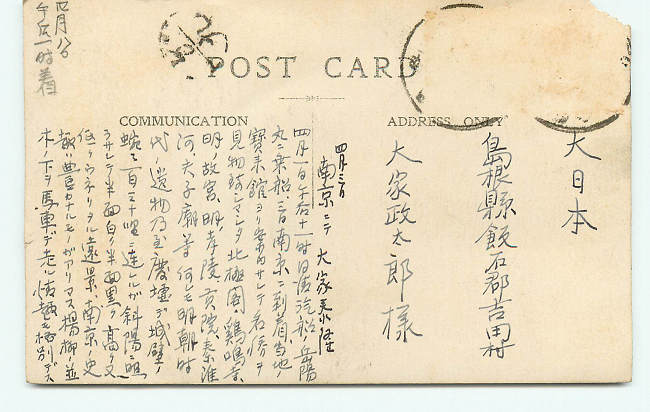 POST CARD
COMMUNICATION
ADDRESS ONLY
大日本
島根縣飯石郡吉田村
大家政太郎様
四月三日
南京ニテ 大家
四月一日午后十一時日清汽船ノ岳陽
丸ニ乗船、三日南京ニ到着、当地ノ
寶来館ヨリ案内サレテ名勝ヲ
見物致シマシタ北極閣、鶏鳴寺、
明ノ故宮、明ノ孝陵、貢院、秦淮
河、夫子廟等何レモ明朝時
代ノ遺物乃至廢墟デ城壁ノ
蜿々百三十喱ニ連レルガ斜陽ニ照
ラサレテ半面白ク半面黒ク高ク又
低クウネリタル遠景、南京ノ史
趣ハ豊カナルモノガアリマス楊柳並
木ノ下ヲ馬車デ走ル情趣モ格別デス
四月八日
午后一時着